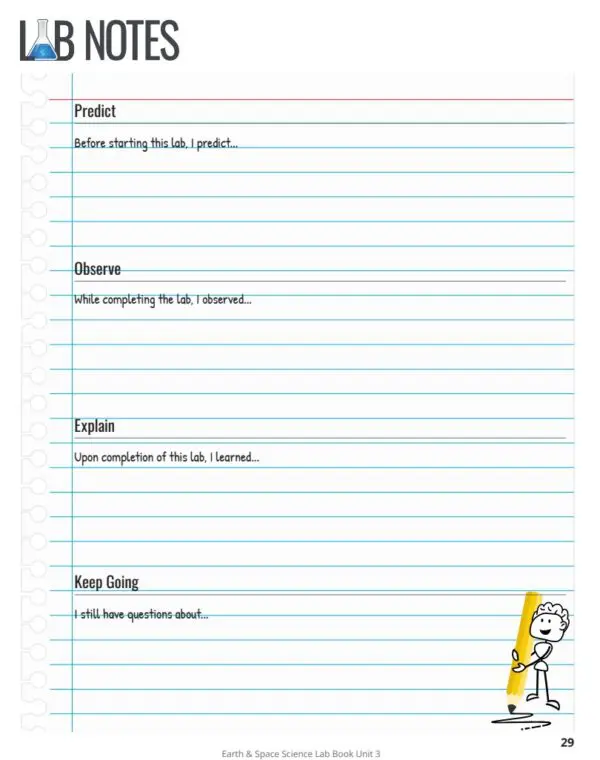 LAB NOTES
Predict
Before starting this lab, I predict...
Observe
While completing the lab, I observed...
Explain
Upon completion of this lab, I learned...
Keep Going
I still have questions about...
29
Earth & Space Science Lab Book Unit 3